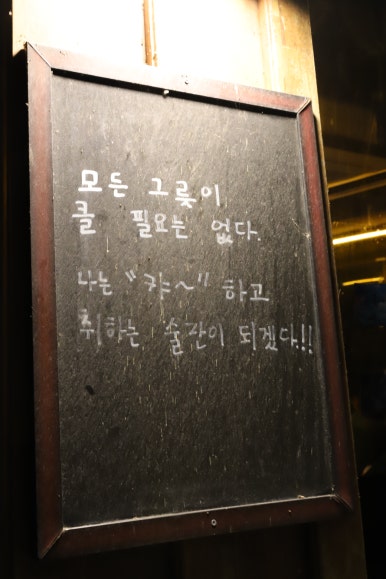 모든 그릇이
클 필요는 없다.
나는 "캬~" 하고
취하는 술잔이 되겠다!!